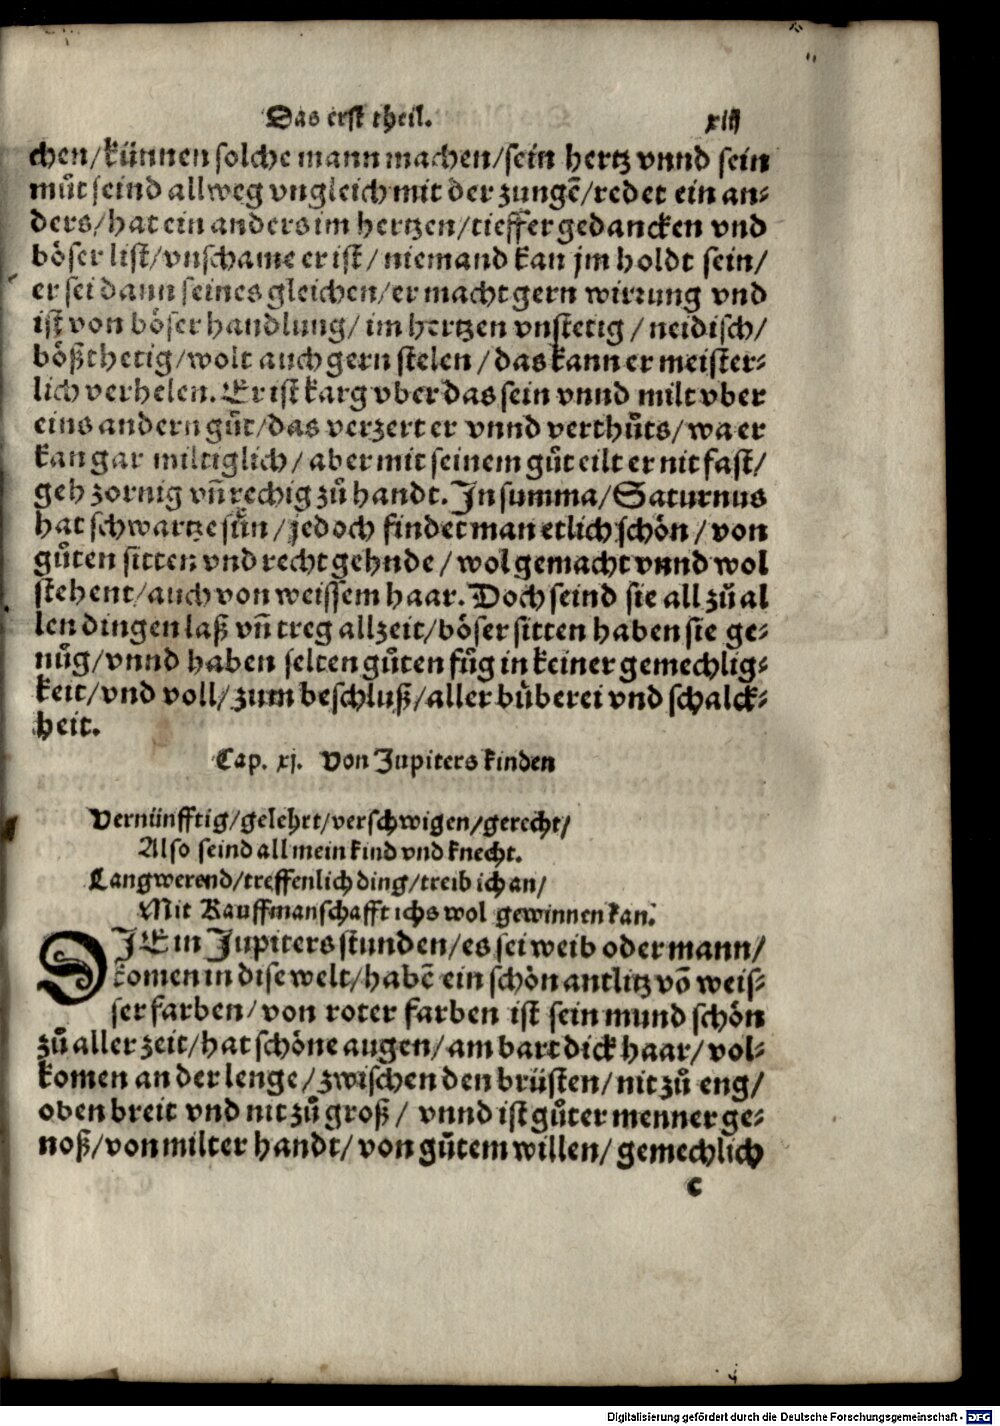 Das erst theil. xiij
chen/künnen solche mann machen/sein hertz vnnd sein
můt seind allweg vngleich mit der zungē/redet ein an⸗
ders/hat ein anders im hertzen/tieffer gedancken vnd
böser list/vnschame er ist/niemand kan jm holdt sein/
er sei dann seines gleichen/er macht gern wirrung vnd
ist von böser handlung/im hertzen vnstetig/neidisch/
bößthetig/wolt auch gern stelen/das kann er meister⸗
lich verhelen. Er ist karg vber das sein vnnd milt vber
eins andern gůt/das verzert er vnnd verthůts/wa er
kan gar miltiglich/aber mit seinem gůt eilt er nit fast/
geh zornig vñ rechig zů handt. In summa/Saturnus
hat schwartze sün/jedoch findet man etlich schön/von
gůten sitten vnd recht gehnde/wol gemacht vnnd wol
stehent/auch von weissem haar. Doch seind sie all zů al
len dingen laß vñ treg allzeit/böser sitten haben sie ge⸗
nůg/vnnd haben selten gůten fůg in keiner gemechlig⸗
keit/vnd voll/zum beschluß/aller bůberei vnd schalck⸗
heit.
Cap. xj. Von Jupiters kinden
Vernünfftig/gelehrt/verschwigen/gerecht/
Also seind all mein kind vnd knecht.
Langwerend/treffenlich ding/treib ich an/
Mit Kauffmanschafft ichs wol gewinnen kan.
DJE in Jupiters stunden/es sei weib oder mann/
komen in dise welt/habē ein schön antlitz vō weis⸗
ser farben/von roter farben ist sein mund schön
zů aller zeit/hat schöne augen/am bart dick haar/vol⸗
komen an der lenge/zwischen den brüsten/nit zů eng/
oben breit vnd nit zů groß/vnnd ist gůter menner ge⸗
noß/von milter handt/von gůtem willen/gemechlich
c
Digitalisierung gefördert durch die Deutsche Forschungsgemeinschaft - DFG